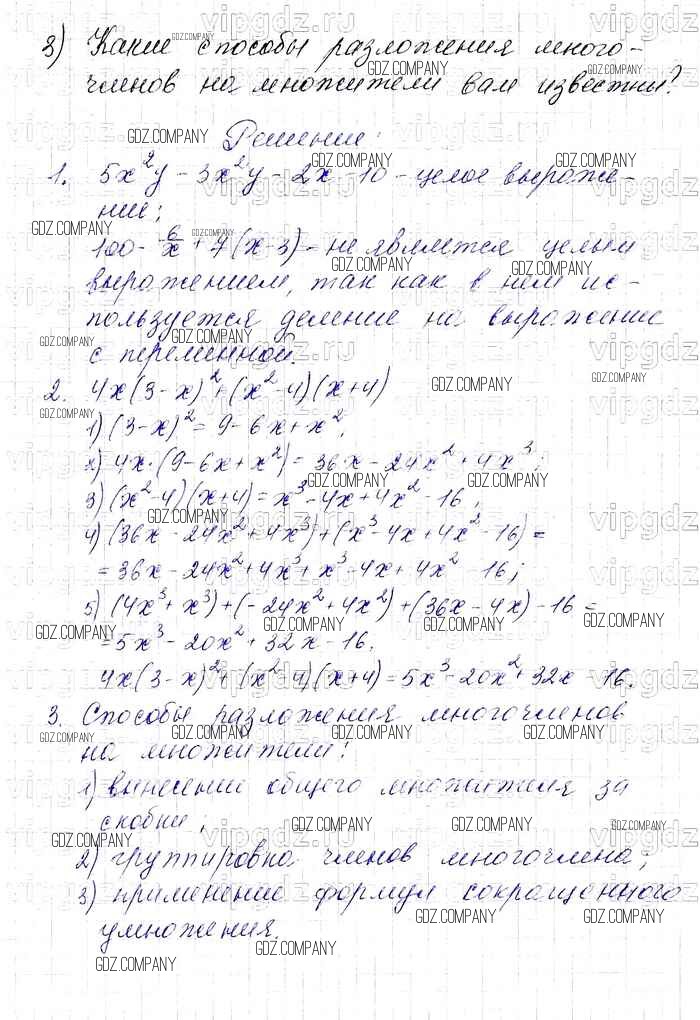 3) Какие способы разложения много-
членов на множители вам известны?
Решение:
1. 5x²y - 3x²y - 2x - 10 - целое выраже-
ние;
100 - 6/x + 7(x-3) - не является целым
выражением, так как в нем ис-
пользуется деление на выражение
с переменной.
2. 4x(3-x)² + (x²-4)(x+4)
1) (3-x)² = 9 - 6x + x²;
2) 4x·(9-6x+x²) = 36x - 24x² + 4x³;
3) (x²-4)(x+4) = x³ - 4x + 4x² - 16;
4) (36x - 24x² + 4x³) + (x³ - 4x + 4x² - 16) =
= 36x - 24x² + 4x³ + x³ - 4x + 4x² - 16;
5) (4x³ + x³) + (-24x² + 4x²) + (36x - 4x) - 16 =
= 5x³ - 20x² + 32x - 16.
4x(3-x)² + (x²-4)(x+4) = 5x³ - 20x² + 32x - 16.
3. Способы разложения многочленов
на множители:
1) вынесение общего множителя за
скобки;
2) группировка членов многочлена;
3) применение формул сокращенного
умножения.